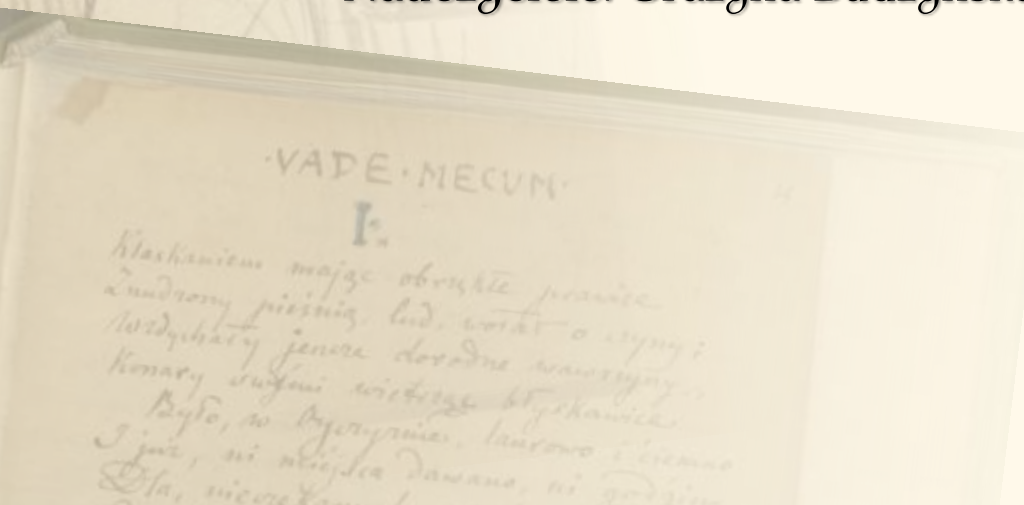 ·VADE·MECUM·
I.
Klaskaniem mając obrzękłe prawice
Znudzony pieśnią, lud, wołał o czyny;
Wzdychały jeszcze dorodne wawrzyny,
Konary swymi wietrząc błyskawice.
Było, w Ojczyźnie, laurowo i ciemno
I już, ni miejsca dawano, ni godziny
Dla